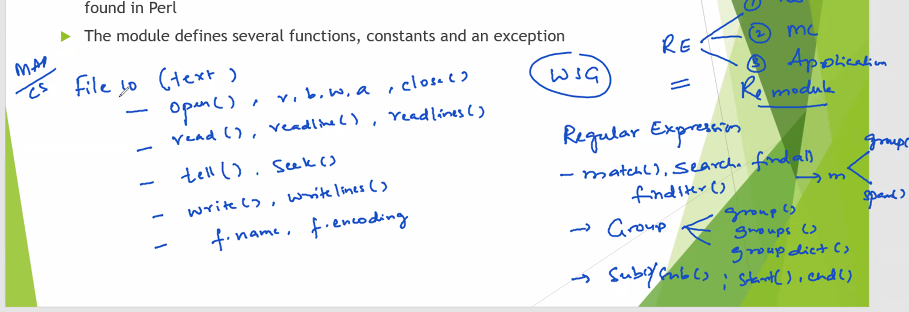 found in Perl
The module defines several functions, constants and an exception
MAP
CS
File IO (text)
— open(), r, b, w, a, close()
— read(), readline(), readlines()
— tell(), seek()
— write(), writelines()
— f.name, f.encoding
WSG
RE
①
② MC
③ Application
Re module
Regular Expression
— match(), search, findall
finditer()
→ m
group(
span()
→ Group
group()
groups()
groupdict()
→ ; start(), end()